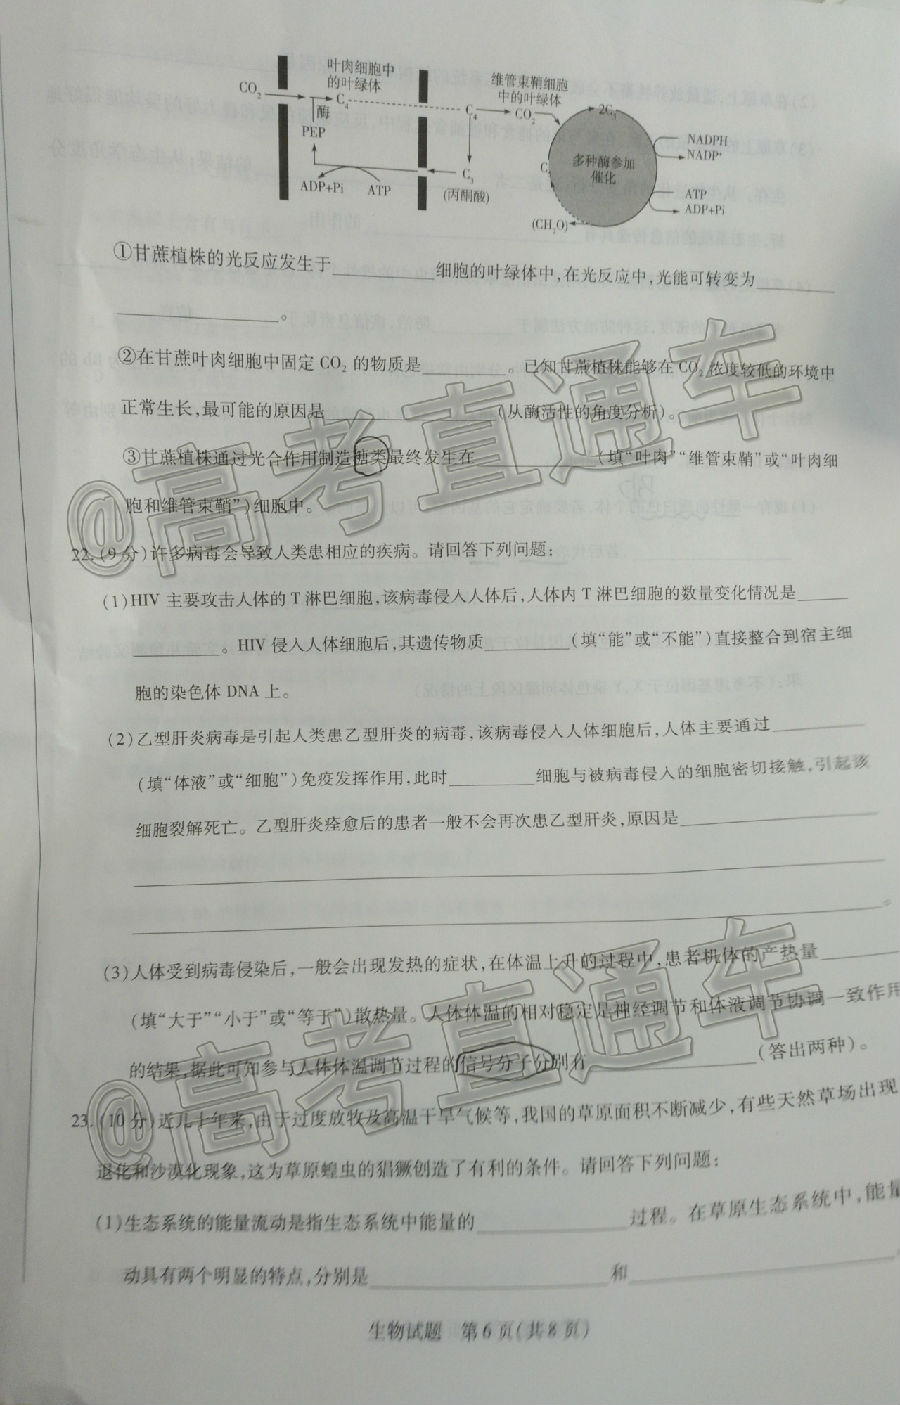 叶肉细胞中
的叶绿体
维管束鞘细胞
中的叶绿体
CO₂
C₄
酶
PEP
ADP+Pi
ATP
C₄
CO₂
C₃
(丙酮酸)
2C₃
多种酶参加
催化
(CH₂O)
NADPH
NADP⁺
ATP
ADP+Pi
①甘蔗植株的光反应发生于________细胞的叶绿体中,在光反应中,光能可转变为______
____________。
②在甘蔗叶肉细胞中固定 CO₂ 的物质是________。已知甘蔗植株能够在 CO₂ 浓度较低的环境中
正常生长,最可能的原因是______________(从酶活性的角度分析)。
③甘蔗植株通过光合作用制造糖类最终发生在__________(填“叶肉”“维管束鞘”或“叶肉细
胞和维管束鞘”)细胞中。
22.(9分)许多病毒会导致人类患相应的疾病。请回答下列问题:
(1)HIV 主要攻击人体的 T 淋巴细胞,该病毒侵入人体后,人体内 T 淋巴细胞的数量变化情况是____
________。HIV 侵入人体细胞后,其遗传物质________(填“能”或“不能”)直接整合到宿主细
胞的染色体 DNA 上。
(2)乙型肝炎病毒是引起人类患乙型肝炎的病毒,该病毒侵入人体细胞后,人体主要通过________
(填“体液”或“细胞”)免疫发挥作用,此时________细胞与被病毒侵入的细胞密切接触,引起该
细胞裂解死亡。乙型肝炎痊愈后的患者一般不会再次患乙型肝炎,原因是________________
____________________________________________________________
____________________________________________________________。
(3)人体受到病毒侵染后,一般会出现发热的症状,在体温上升的过程中,患者机体的产热量______
(填“大于”“小于”或“等于”)散热量。人体体温的相对稳定是神经调节和体液调节协调一致作用
的结果,据此可知参与人体体温调节过程的信号分子分别有______________(答出两种)。
23.(10分)近几十年来,由于过度放牧及高温干旱气候等,我国的草原面积不断减少,有些天然草场出现
退化和沙漠化现象,这为草原蝗虫的猖獗创造了有利的条件。请回答下列问题:
(1)生态系统的能量流动是指生态系统中能量的____________过程。在草原生态系统中,能量
动具有两个明显的特点,分别是____________________和____________________
生物试题 第6页(共8页)
@高考直通车
@高考直通车